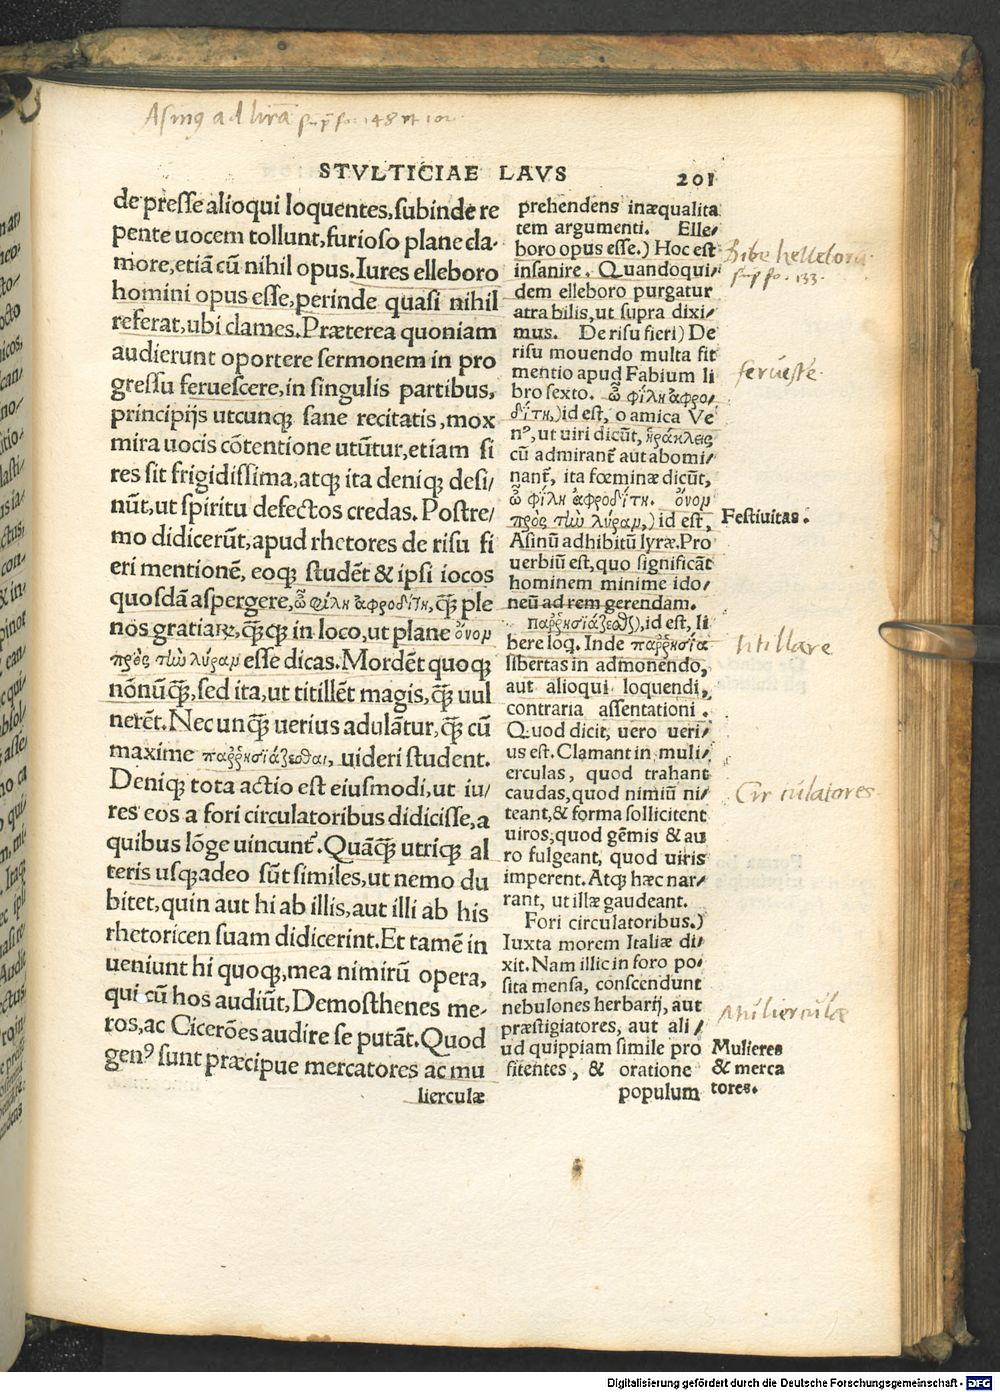 Asinꝰ ad lirā sup̄ fo. 148 et
STVLTICIAE LAVS
201
de presse alioqui loquentes, subinde re
pente uocem tollunt, furioso plane cla-
more, etiā cū nihil opus. Iures elleboro
homini opus esse, perinde quasi nihil
referat, ubi clames. Præterea quoniam
audierunt oportere sermonem in pro
gressu feruescere, in singulis partibus,
principijs utcunqꝫ sane recitatis, mox
mira uocis cōtentione utūtur, etiam si
res sit frigidissima, atqꝫ ita deniqꝫ desi/
nūt, ut spiritu defectos credas. Postre/
mo didicerūt, apud rhetores de risu fi
eri mentionē, eoqꝫ studēt & ipsi iocos
quosdā aspergere, ὦ φίλη ἀφροδίτη, q̄ꝫ ple
nos gratiaꝝ, q̄ꝫqꝫ in loco, ut plane ὄνομ
πρὸς τὼ λύραμ esse dicas. Mordēt quoqꝫ
nōnūq̄ꝫ, sed ita, ut titillēt magis, q̄ꝫ uul
nerēt. Nec unq̄ꝫ uerius adulātur, q̄ꝫ cū
maxime παῤῥησιάζεσθαι, uideri student.
Deniqꝫ tota actio est eiusmodi, ut iu/
res eos a fori circulatoribus didicisse, a
quibus lōge uincunt᷑. Quāq̄ꝫ utriqꝫ al
teris usqꝫadeo sūt similes, ut nemo du
bitet, quin aut hi ab illis, aut illi ab his
rhetoricen suam didicerint. Et tamē in
ueniunt hi quoqꝫ, mea nimirū opera,
qui cū hos audiūt, Demosthenes me-
ros, ac Cicerōes audire se putāt. Quod
genꝰ sunt præcipue mercatores ac mu
lierculæ
prehendens inæqualita
tem argumenti. Elle-
boro opus esse.) Hoc est
insanire. Quandoqui/
dem elleboro purgatur
atra bilis, ut supra dixi/
mus. De risu fieri) De
risu mouendo multa fit
mentio apud Fabium li
bro sexto. ὦ φίλη ἀφρο/
δίτη,) id est, o amica Ve
nꝰ, ut uiri dicūt, ἡράκλεις
cū admirant᷑ aut abomi/
nant᷑, ita fœminæ dicūt,
ὦ φίλη ἀφροδίτη. ὄνομ
πρὸς τὼ λύραμ,) id est,
Asinū adhibitū lyræ. Pro
uerbiū est, quo significāt
hominem minime ido/
neū ad rem gerendam.
παῤῥησιάζεσθ) id est, li
bere loq. Inde παῤῥησία
libertas in admonendo,
aut alioqui loquendi,
contraria assentationi.
Quod dicit, uero ueri/
us est. Clamant in muli/
erculas, quod trahant
caudas, quod nimiū ni/
teant, & forma sollicitent
uiros, quod gēmis & au
ro fulgeant, quod uiris
imperent. Atqꝫ hæc nar/
rant, ut illæ gaudeant.
Fori circulatoribus.)
Iuxta morem Italiæ di/
xit. Nam illic in foro po/
sita mensa, conscendunt
nebulones herbarij, aut
præstigiatores, aut ali/
ud quippiam simile pro
fitentes, & oratione
populum
Bibe helleborū
sup̄ fo. 133.
ferueste
Festiuitas.
titillare
Circulatores
Mulierculæ
Mulieres
& merca
tores.
Digitalisierung gefördert durch die Deutsche Forschungsgemeinschaft - DFG